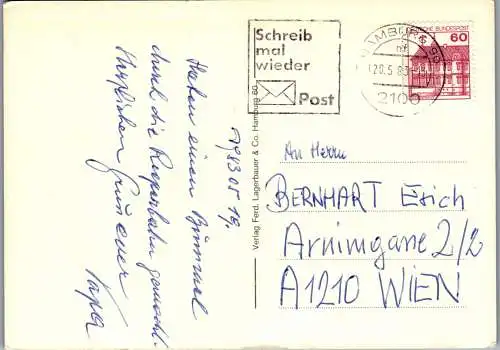 Schreib
mal
wieder
Post
HAMBURG 90
20.5.83
2100
DEUTSCHE BUNDESPOST
60
1983 05 19.
Haben einen Bummel
durch die Reeperbahn gemacht.
Herzlichen Gruss euer
Papa
Verlag Ferd. Lagerbauer & Co. Hamburg 60
An Herrn
BERNHART Erich
Arnimgasse 2/2
A1210 WIEN